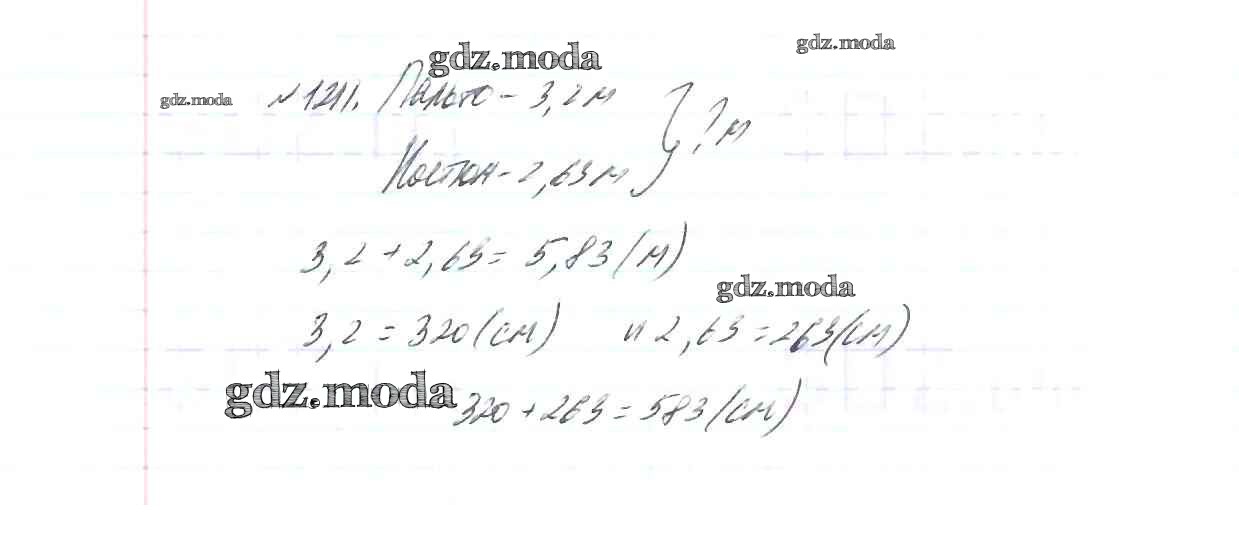 gdz.moda
gdz.moda
gdz.moda
№1211. Пальто - 3,2 м
Костюм - 2,63 м } ? м
3,2 + 2,63 = 5,83 (м)
gdz.moda
3,2 = 320 (см) и 2,63 = 263 (см)
gdz.moda
320 + 263 = 583 (см)